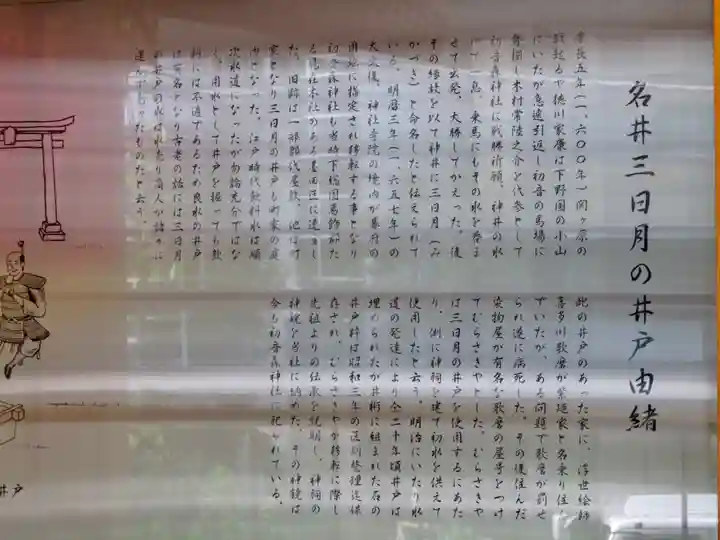 名井三日月の井戸由緒
慶長五年(一、六〇〇年)関ヶ原の
戦起るや徳川家康は下野国の小山
にいたが急遽引返し初音の馬場に
集開し木村常陸之介を代参として
初音森神社に戦勝祈願、神井の水
にて一息、乗馬にもその水を呑ま
せて出発、大勝してかえった。後
その縁故を以て神井に三日月(み
かづき)と命名したと伝えられて
いる。明暦三年(一、六五七年)の
大火後、神社寺院の境内が幕府の
用地に指定され移転する事となり
初音森神社も当時下総国葛飾郡た
る現在本社のある墨田区に遷座し
た。旧跡は一部郡代屋敷、他は町
家となり三日月の井戸も町家の庭
内となった。江戸時代飲料水は順
次水道になったが勿論充分ではな
く、用水として井戸を掘っても飲
料には不適であるため良水の井戸
は有名となり古老の話には三日月
の井戸の水は水たり商人が諸々に
運んでいったものだと云う。
此の井戸のあった家に、浮世絵師
喜多川歌麿が紫屋家と名乗り住ん
でいたが、ある問題で歌麿が罰せ
られ遂に病死した。その後住んだ
染物屋が有名な歌麿の屋号をつけ
てむらさきやとした。むらさきや
は三日月の井戸を使用するにあた
り、側に神祠を建て初水を供えて
使用したと云う。明治にいたり水
道の発達により仝二十年頃井戸は
埋められたが井桁に組まれた石の
井戸枠は昭和三年の区劃整理迄保
存され、むらさきやが移転に際し
先祖よりの伝承を説明し、神祠の
神鏡を当社に納めた。その神鏡は
今も初音森神社に祀られている。
井戸